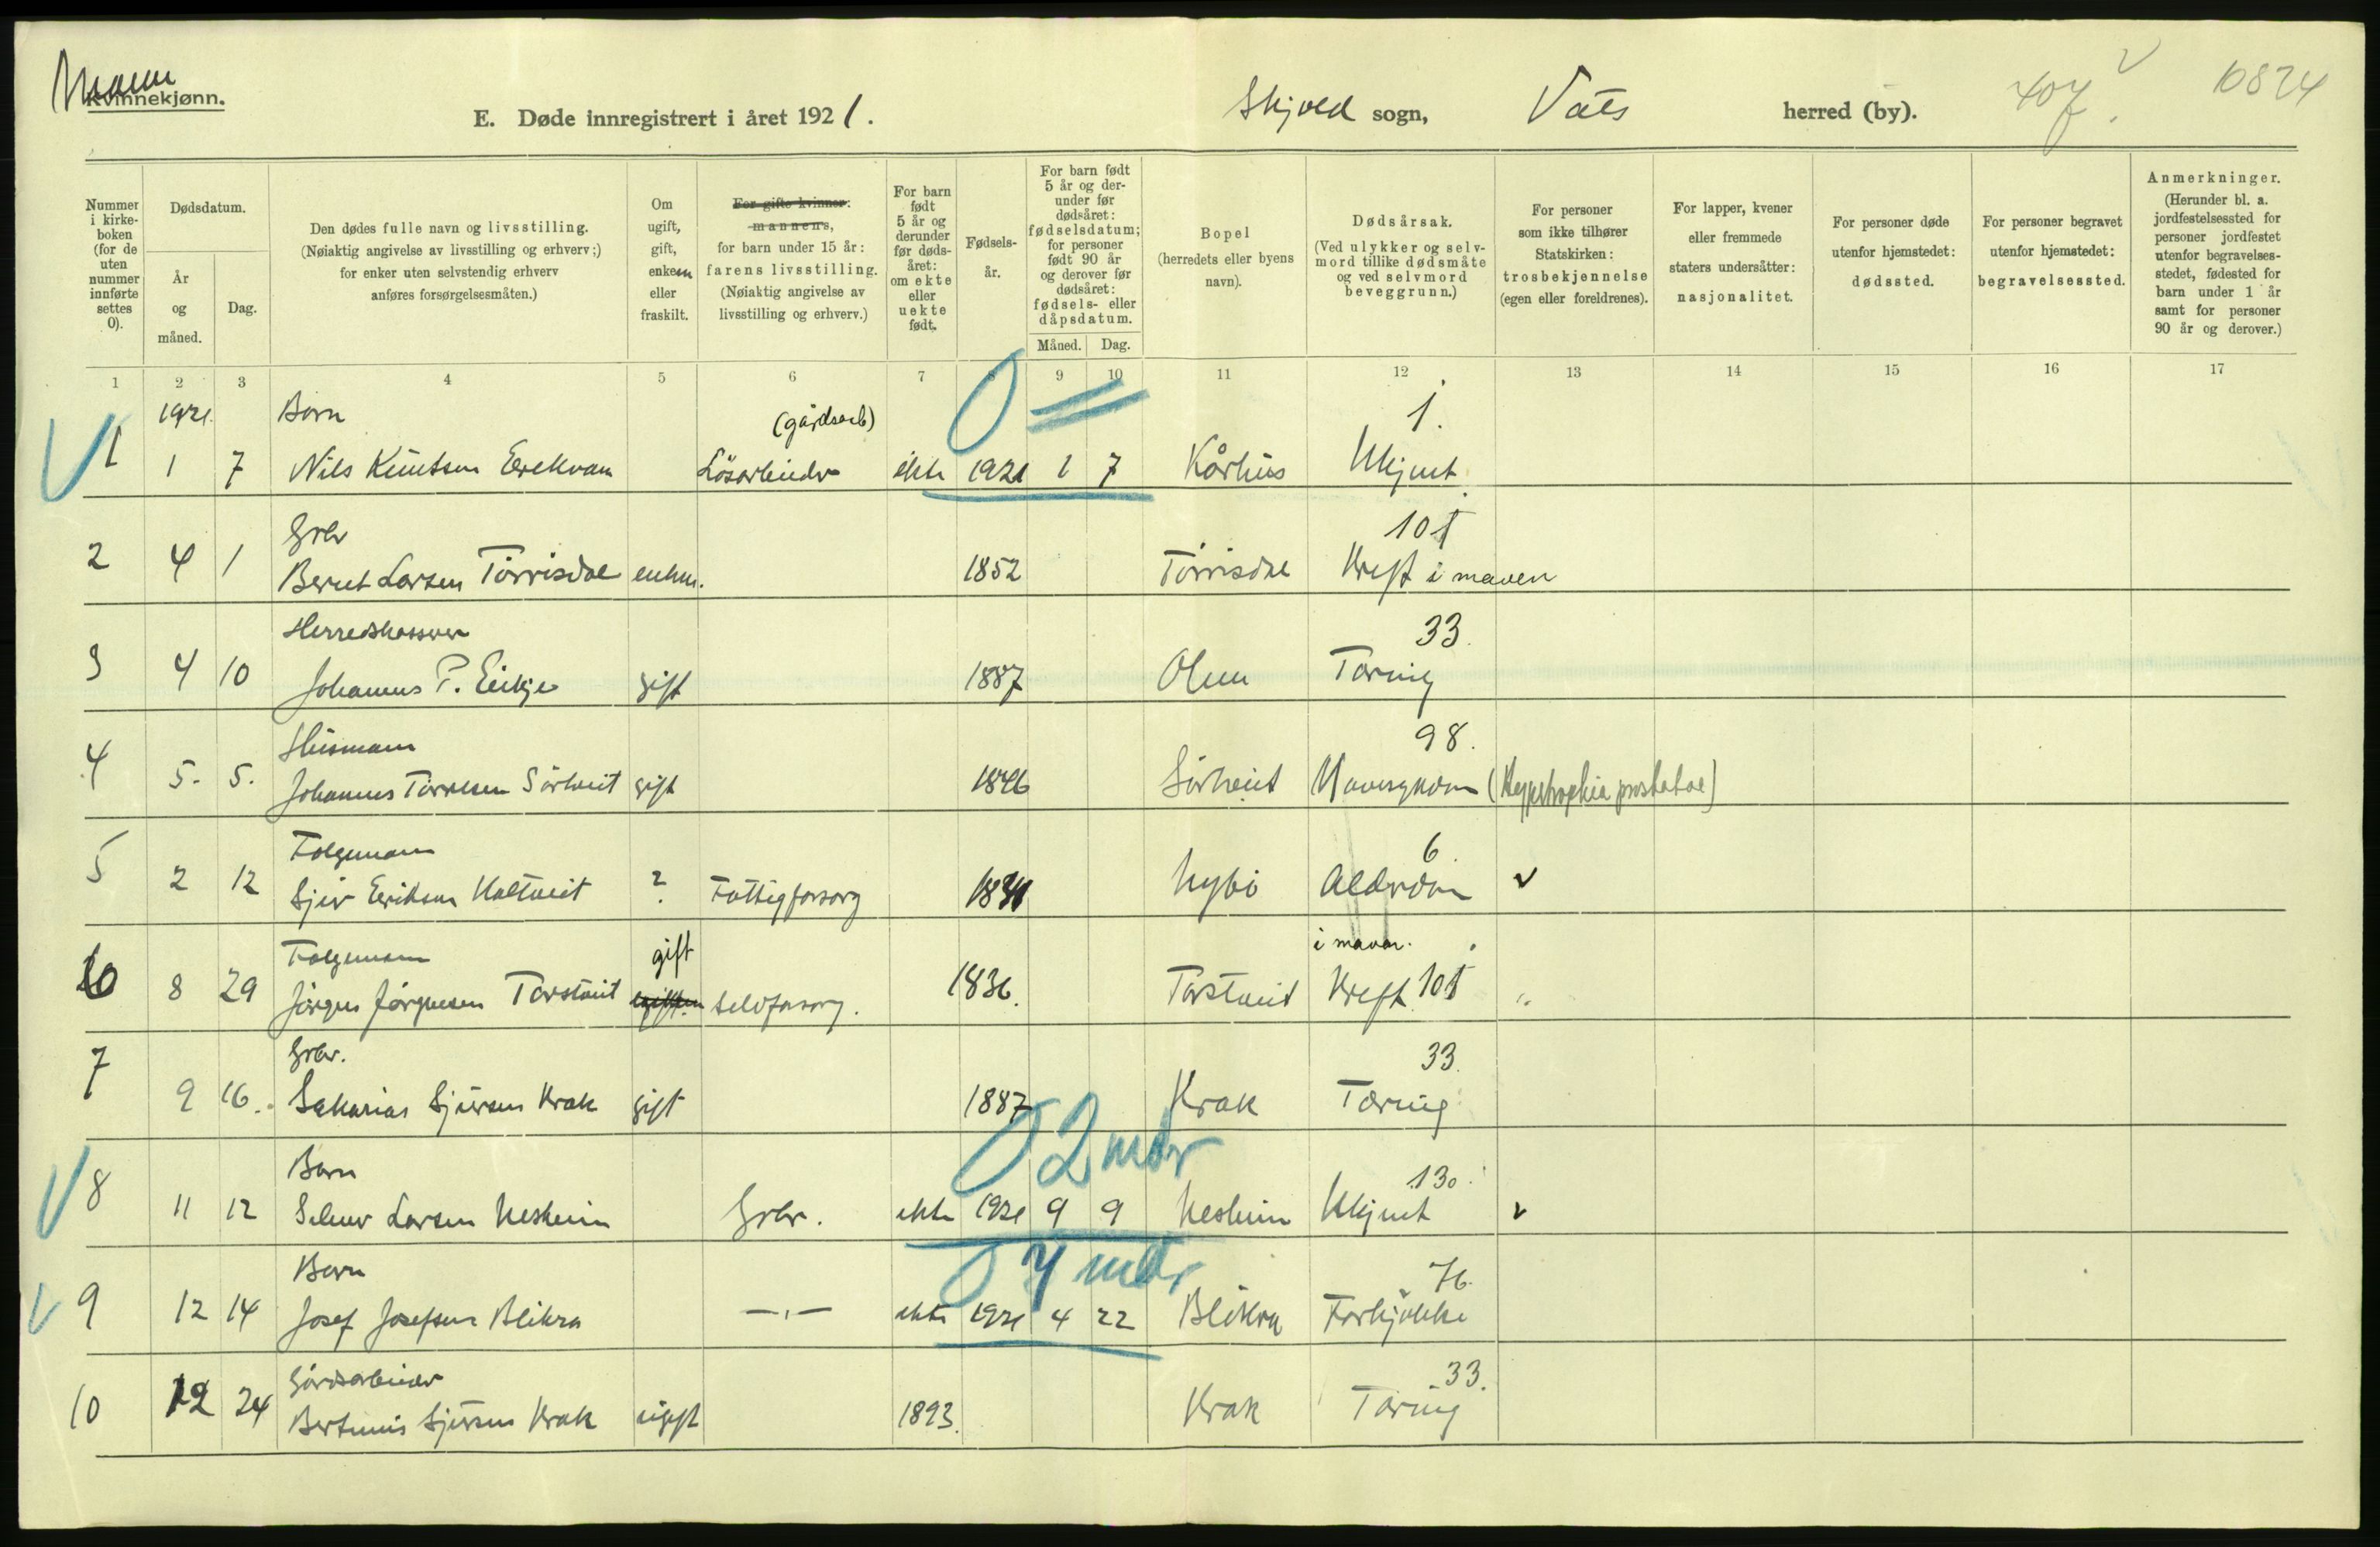 Mann
Kvinnekjønn.
E. Døde innregistrert i året 1921.
Skjold sogn,
Vats
herred (by).
407
10824
Nummer i kirkeboken (for de uten nummer innførte settes 0).
Dødsdatum.
År og måned.
Dag.
Den dødes fulle navn og livsstilling.
(Nøiaktig angivelse av livsstilling og erhverv;)
for enker uten selvstendig erhverv
anføres forsørgelsesmåten.)
Om ugift, gift, enkem eller fraskilt.
For gifte kvinner:
mannens,
for barn under 15 år:
farens livsstilling.
(Nøiaktig angivelse av
livsstilling og erhverv.)
For barn født 5 år og derunder før dødsåret: om ekte eller uekte født.
Fødselsår.
For barn født 5 år og derunder før dødsåret: fødselsdatum; for personer født 90 år og derover før dødsåret: fødsels- eller dåpsdatum.
Måned. Dag.
Bopel
(herredets eller byens navn).
Dødsårsak.
(Ved ulykker og selvmord tillike dødsmåte og ved selvmord beveggrunn.)
For personer som ikke tilhører Statskirken: trosbekjennelse (egen eller foreldrenes).
For lapper, kvener eller fremmede staters undersåtter: nasjonalitet.
For personer døde utenfor hjemstedet: dødssted.
For personer begravet utenfor hjemstedet: begravelsessted.
Anmerkninger.
(Herunder bl. a. jordfestelsessted for personer jordfestet utenfor begravelsesstedet, fødested for barn under 1 år samt for personer 90 år og derover.)
1 2 3 4 5 6 7 8 9 10 11 12 13 14 15 16 17
1921. Barn (gårdsarb) 0 1.
1 1 7 Nils Knutsen Erekvam Lösarbeider ekte 1921 1 7 Kårhus Ukjent
Grbr 10 t
2 4 1 Bernt Larsen Törrisdal enkm. 1852 Törrisdal Kreft i maven
Herredskasserer 33.
3 4 10 Johannes P. Eikje gift 1887 Ølen Tæring
Husmann 98.
4 5. 5. Johannes Törresen Sörheit gift 1846 Sörheit (Hypertrophia prostatae)
Folgemann 6.
5 2 12 Sjur Eriksen ? Fattigforsorg Nybö Alderdom
Folgemann gift i maven.
8 29 Jörgen Jörgensen Torstveit selvforsorg. 1836. Torstveit Kreft 10 t
Grbr. 33.
7 9 16. Sakarias Sjursen Krak gift 1887 Krak Tæring
Barn 0 2 mdr 130.
8 11 12 Larsen Nesheim Grbr. ekte 1921 9 9 Nesheim Ukjent
Barn 0 7 mdr 76.
9 12 14 Josef Josefsen Blikra —„— ekte 1921 4 22 Blikra Forkjölelse
Gårdsarbeider 33.
10 12 24 Bertinius Sjursen Krak ugift 1893. Krak Tæring